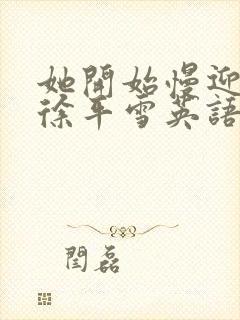 她開始慢迎
徐平雪英語
閆磊